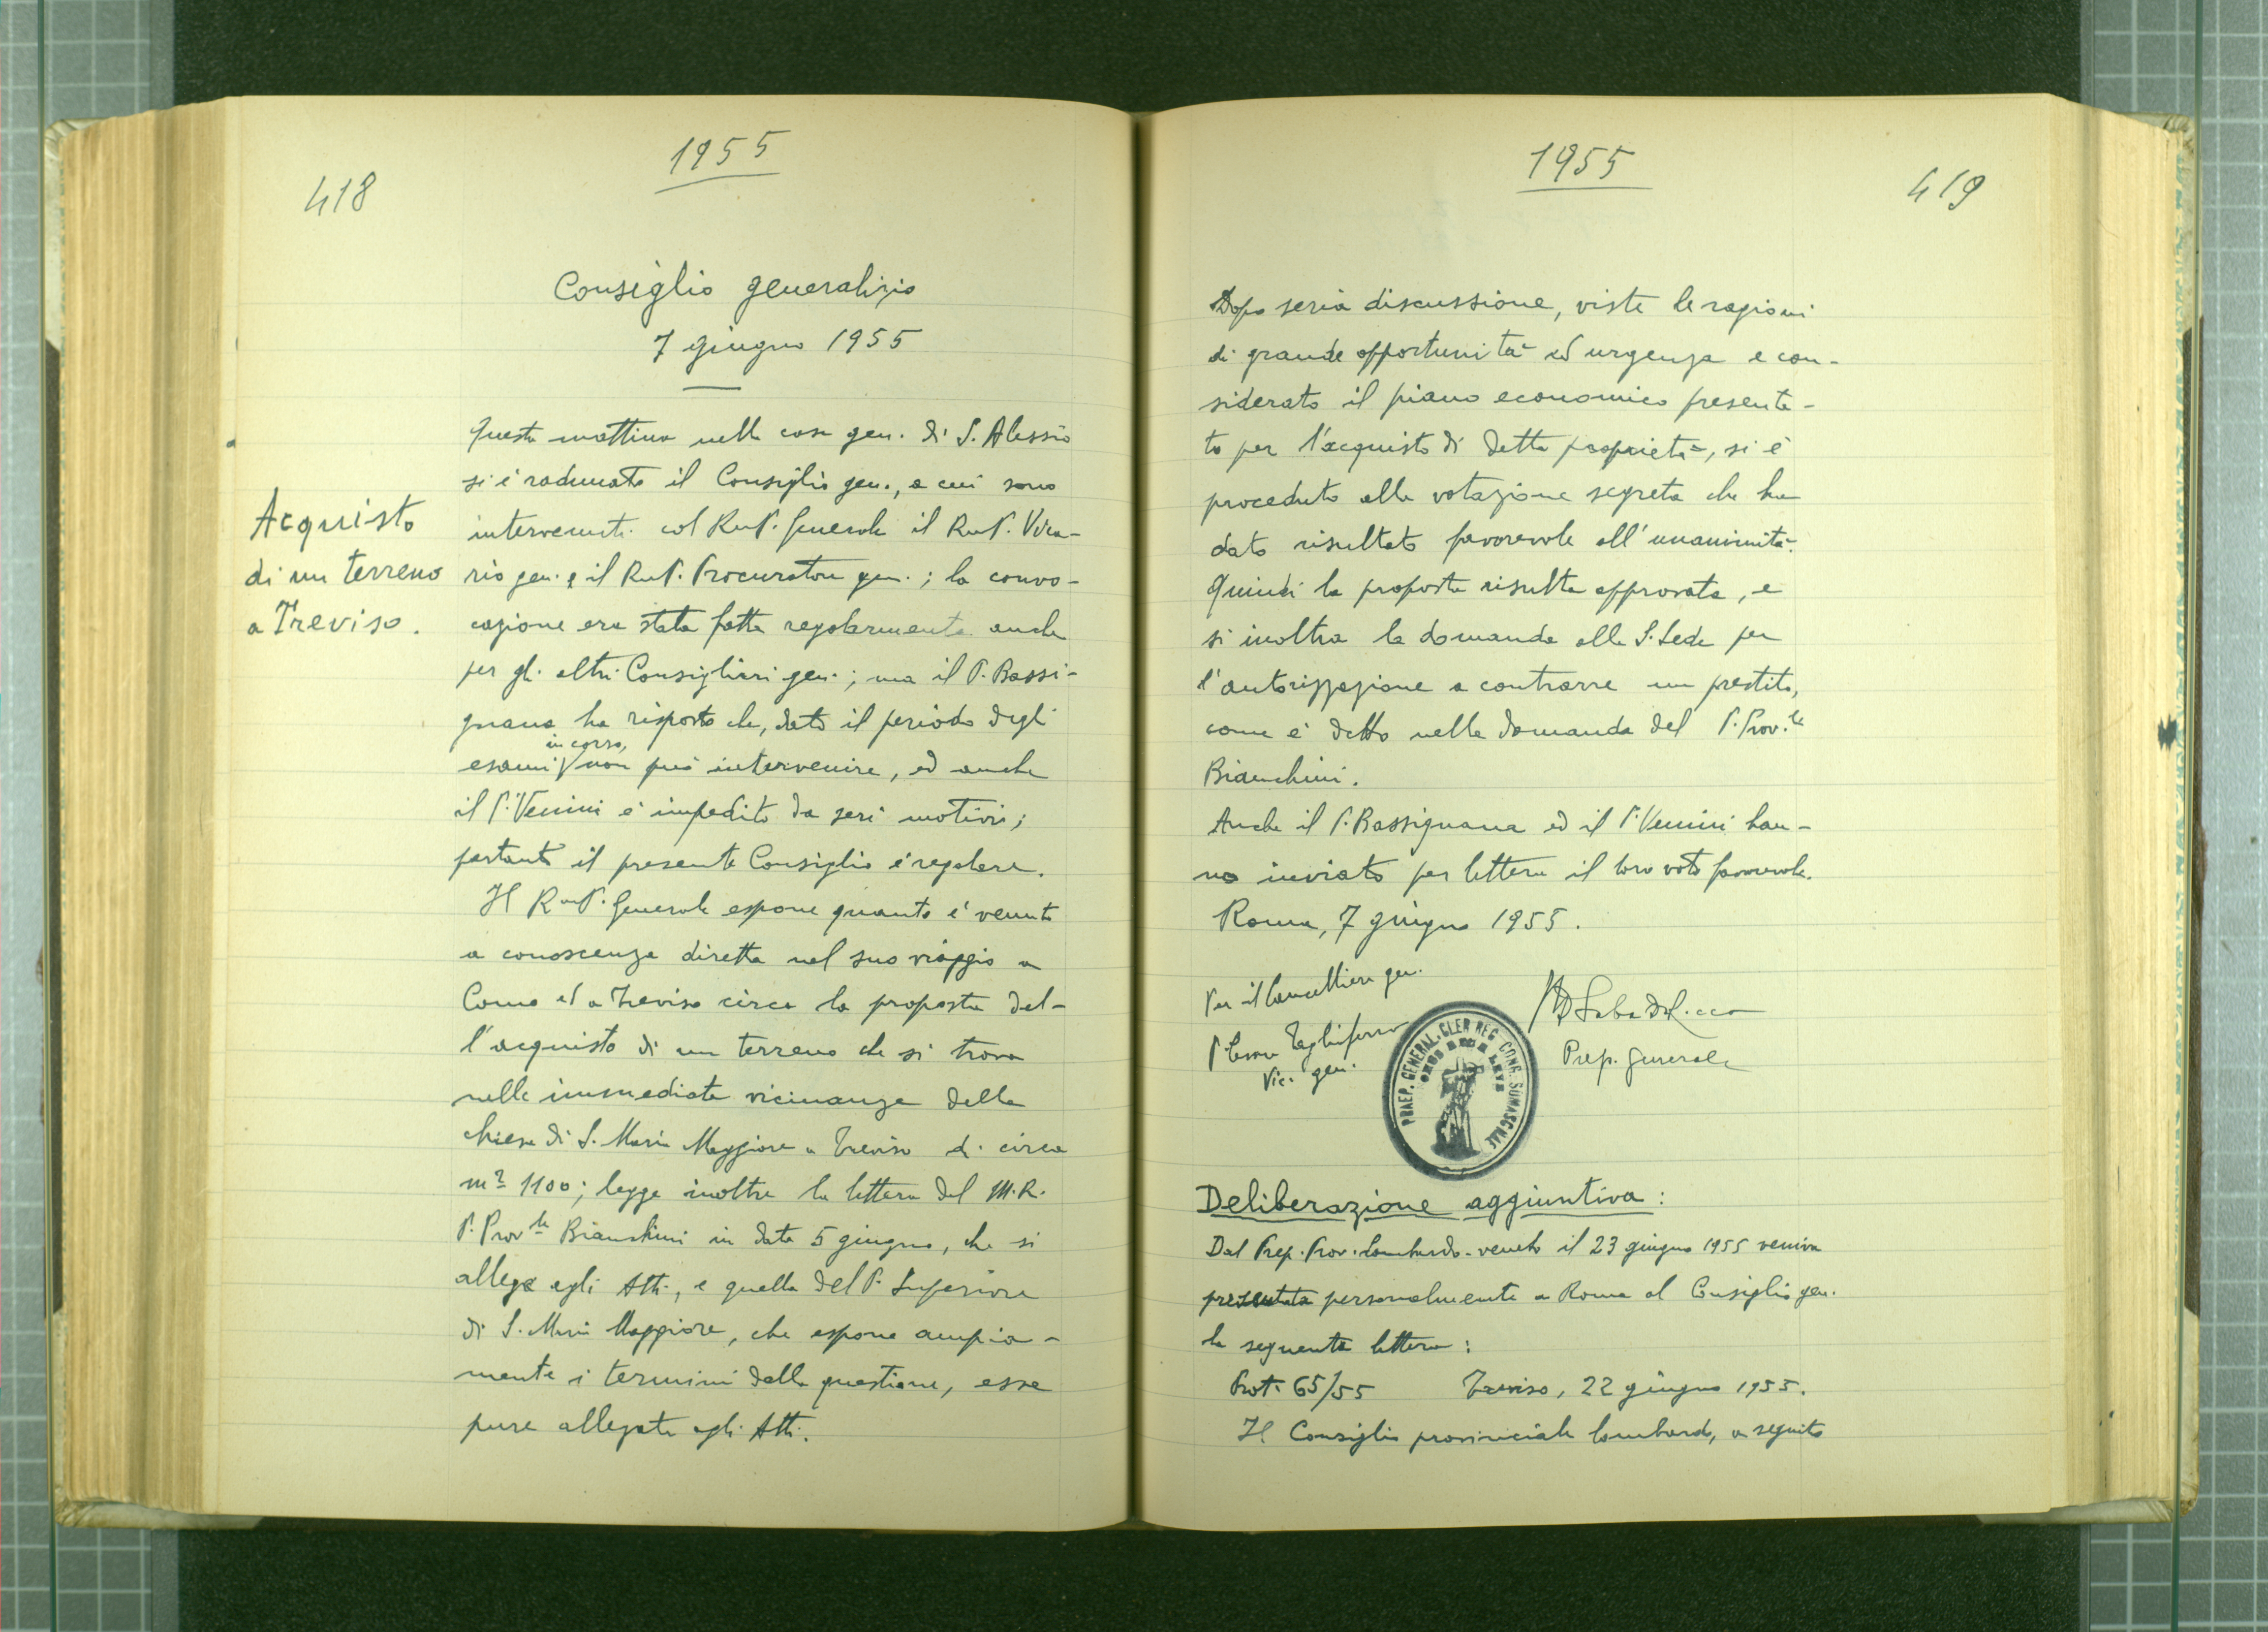 1955
418
Consiglio generalizio
7 giugno 1955
Acquisto
di un terreno
a Treviso.
Questa mattina nella casa gen. di S. Alessio
si è radunato il Consiglio gen., a cui sono
intervenuti col Rev.P. Generale il Rev.P. Vica-
rio gen. e il Rev.P. Procuratore gen.; la convo-
cazione era stata fatta regolarmente anche
per gli altri Consiglieri gen.; ma il P. Bassi-
gnana ha risposto che, dato il periodo degli
esami in corso, non può intervenire, ed anche
il P. Venini è impedito da seri motivi;
pertanto il presente Consiglio è regolare.
Il Rev.P. Generale espone quanto è venuto
a conoscenza diretta nel suo viaggio a
Como ed a Treviso circa la proposta del-
l'acquisto di un terreno che si trova
nelle immediate vicinanze della
chiesa di S. Maria Maggiore a Treviso di circa
m² 1100; legge inoltre la lettera del M.R.
P. Prov.le Bianchini in data 5 giugno, che si
allega agli Atti, e quella del P. Superiore
di S. Maria Maggiore, che espone ampia-
mente i termini della questione, essa
pure allegata agli Atti.
1955
419
Dopo seria discussione, viste le ragioni
di grande opportunità ed urgenza e con-
siderato il piano economico presenta-
to per l'acquisto di detta proprietà, si è
proceduto alla votazione segreta che ha
dato risultato favorevole all'unanimità.
Quindi la proposta risulta approvata, e
si inoltra la domanda alla S. Sede per
l'autorizzazione a contrarre un prestito,
come è detto nella domanda del P. Prov.le
Bianchini.
Anche il P. Bassignana ed il P. Venini han-
no inviato per lettera il loro voto favorevole.
Roma, 7 giugno 1955.
Per il Cancelliere gen.
P. Cesare Tagliaferro
Vic. gen.
Prep. Generale
PRAEP. GENERAL. CLER. REG. CONG. SOMASCHAE
Deliberazione aggiuntiva:
Dal Prep. Prov. Lombardo-veneto il 23 giugno 1955 veniva
presentata personalmente a Roma al Consiglio gen.
la seguente lettera:
Prot. 65/55 Treviso, 22 giugno 1955.
Il Consiglio provinciale lombardo, a seguito